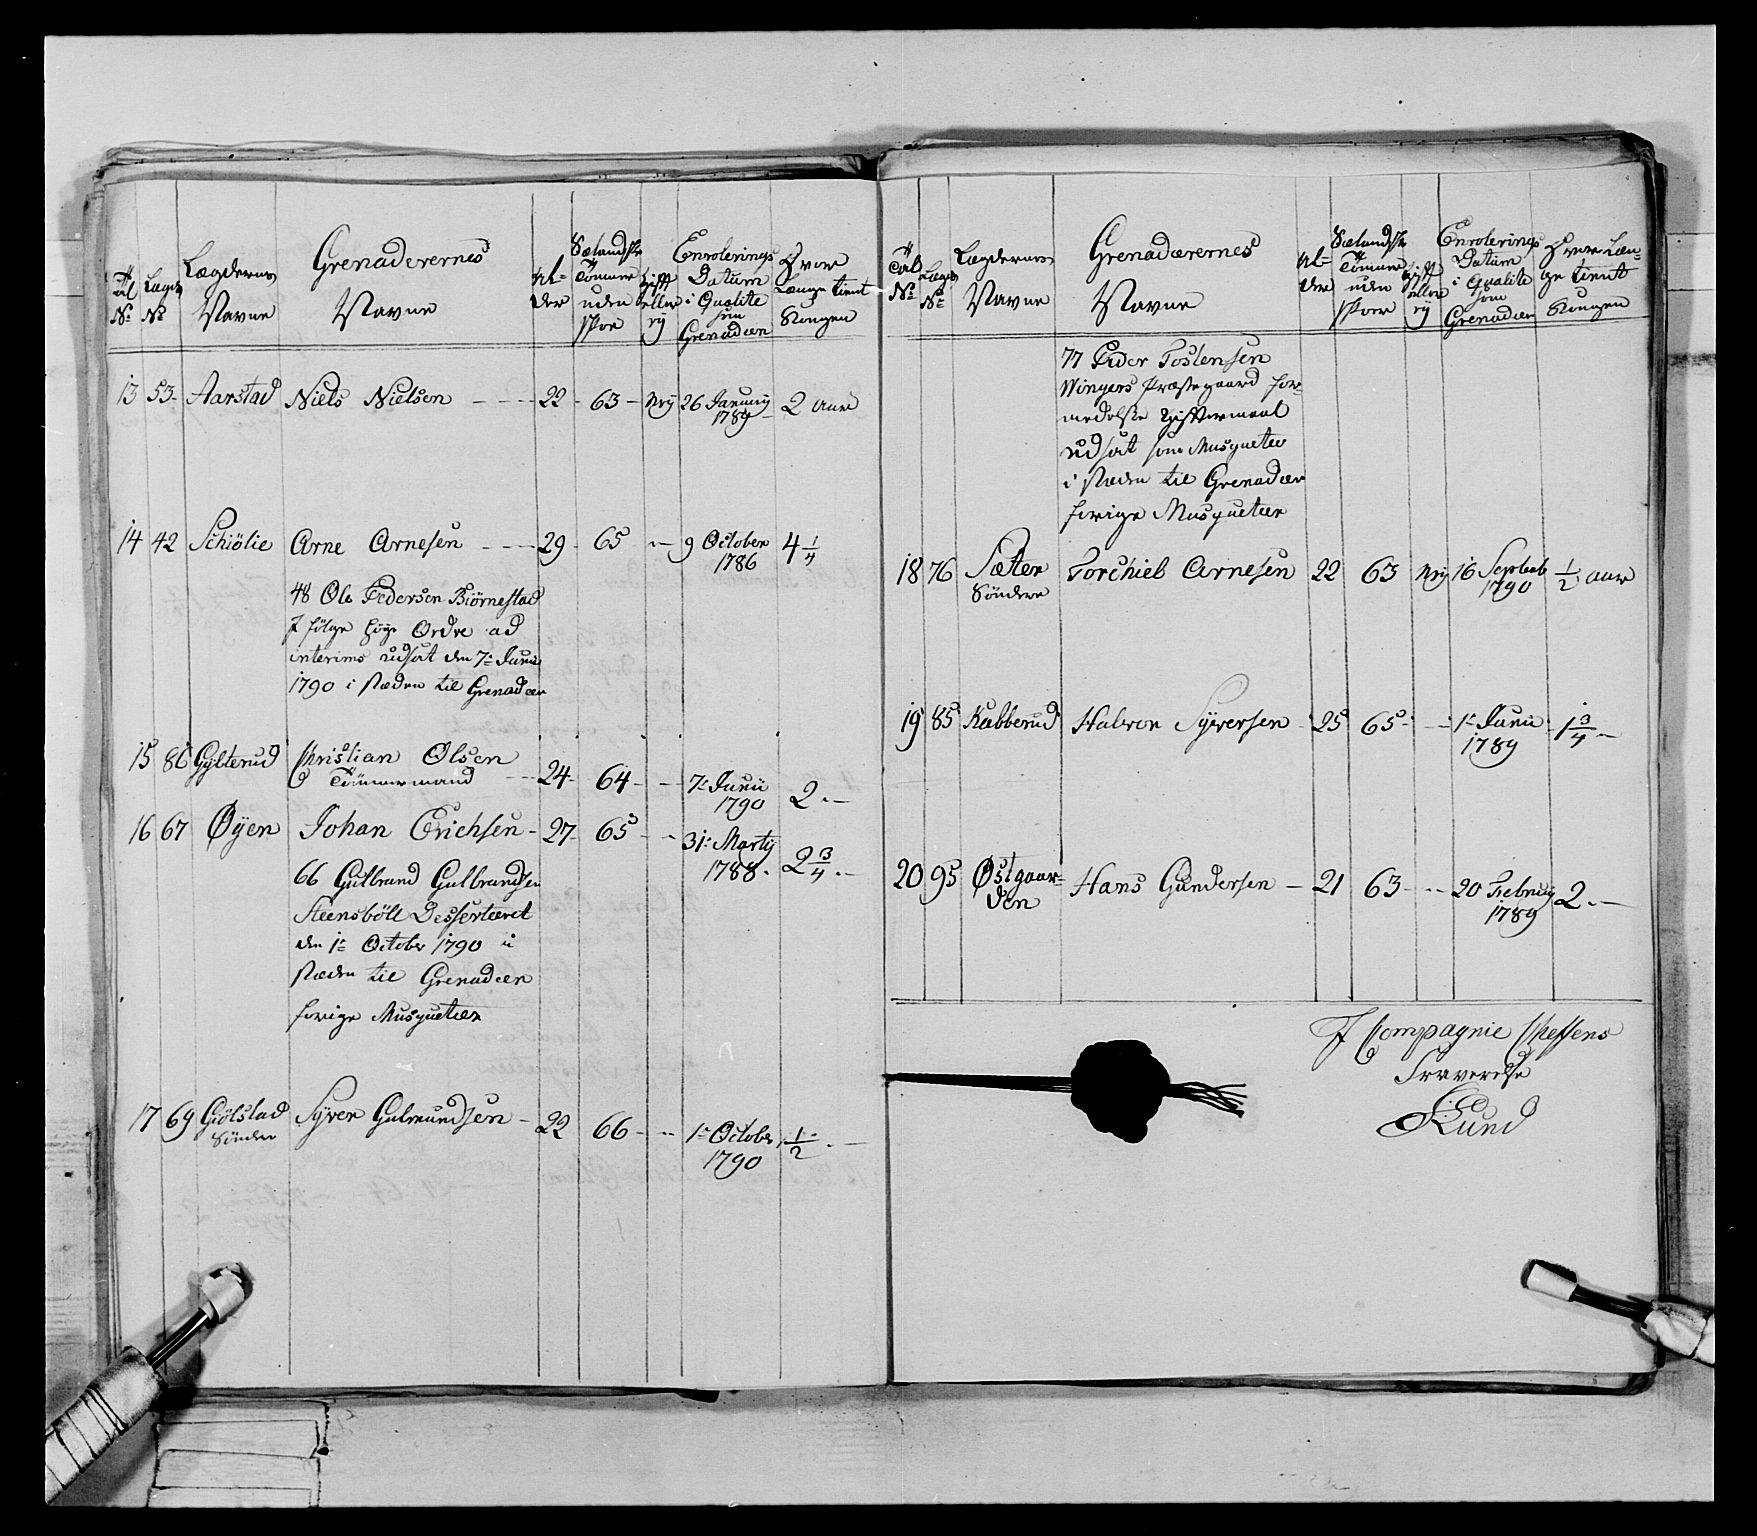 Tal No
Lægds No
Lægdernes Navne
Grenaderernes Navne
Al-
der
Sælandske
Tommer
uden
skoe
Gift
eller
ey
Enrolerings
Datum
i Qualite
som
Grenadeer
Hvor
Længe tient
Kongen
13 53 Aarstad Niels Nielsen 22 63 Ney 26 Januarij 1789 2 Aar
14 42 Schiölie Arne Arnesen 29 65 9 October 1786 4 1/4
48 Ole Pedersen Biörnestad
I fölge höye Ordre ad
interims udsat den 7de Junii
1790 i stæden til Grenadeer
15 86 Gylterud Christian Olsen
Tömmermand 24 64 7de Junii 1790 2
16 67 Øyen Johan Erichsen 27 65 31te Martij 1788 2 3/4
66 Gulbrand Gulbrandsen
Steensböll Desserteret
den 1te October 1790 i
stæden til Grenadeer
forige Musqueteer
17 69 Giölstad
Söndre Syver Gulmundsen 22 66 1te October 1790 1/2
Tal
No
Lægds
No
Lægdernes
Navne
Grenaderernes
Navne
Al-
der
Sælandske
Tommer
uden
skoer
Gift
eller
ey
Enrolerings
Datum
i Qualite
som
Grenadeer
Hvor Læn-
ge tient
Kongen
77 Peder Tostensen
Wingers Præstegaard for-
medelst Giftermaal
udsat som Musqueteer
i stæden til Grenadeer
forige Musqueteer
18 76 Sæter
Söndere Torchiel Arnesen 22 63 Ney 16 Septemb 1790 1/2 aar
19 85 Kabberud Halvor Syversen 25 65 1te Junii 1789 1 3/4
20 95 Østgaar-
den Hans Gundersen 21 63 20 Februarij 1789 2
I Compagnie Cheffens
Fraværelse
Lund